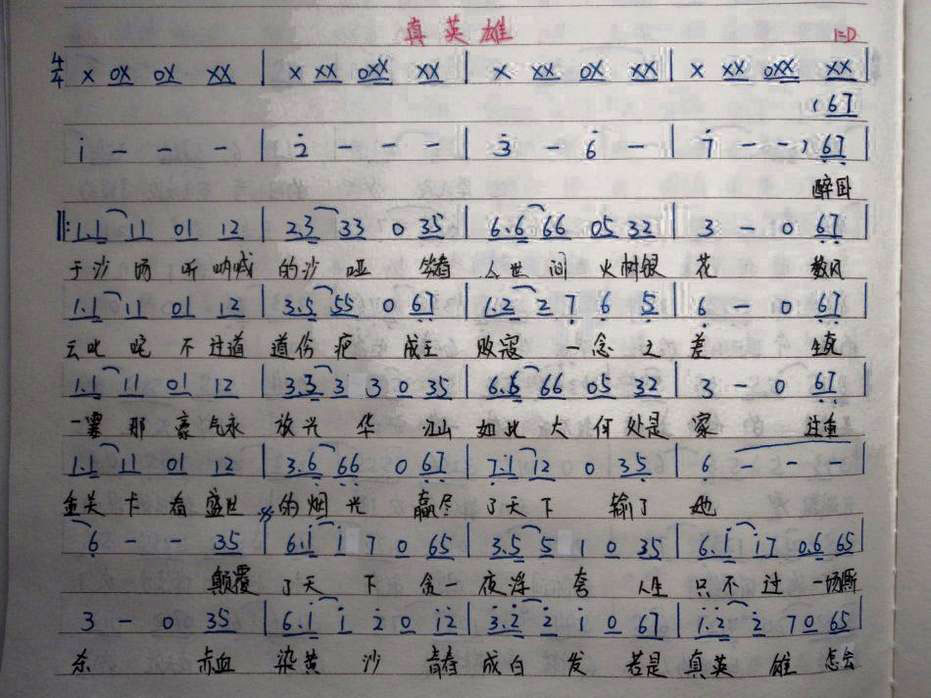 真英雄 1=D
4/4 X 0X 0X XX | X XX 0XX XX | X XX 0X XX | X XX 0XX XX |
( 67
i - - - | 2 - - - | 3 - 6 - | 7 - - ) 67 |
醉卧
‖: 1.1 11 01 12 | 2.3 33 0 35 | 6.6 66 05 32 | 3 - 0 67 |
于沙场 听呐喊 的沙哑 笑看 人世间 火树银 花 数风
1.1 11 01 12 | 3.5 55 0 67 | 1.2 2 7 6 5 | 6 - 0 67 |
云叱咤 不过道 道伤疤 成王 败寇 一念之差 生死
1.1 11 01 12 | 3.3 3 3 0 35 | 6.6 66 05 32 | 3 - 0 67 |
一霎那 豪气永 放光华 江山 如此大 何处是 家 过重
1.1 11 01 12 | 3.6 66 0 67 | 7.1 12 0 35 | 6 - - - |
重关卡 看盛世 的烟光 赢尽 了天下 输了 她
6 - - 35 | 6.1 1 7 0 65 | 3.5 5 1 0 35 | 6.1 17 0.6 65 |
颠覆 了天下 贪一 夜浮夸 人生 只不过 一场厮
3 - 0 35 | 6.1 1 2 0 12 | 3.2 2 1 0 67 | 1.2 2 7 0 65 |
杀 赤血 染黄沙 青春 成白发 若是 真英雄 怎会